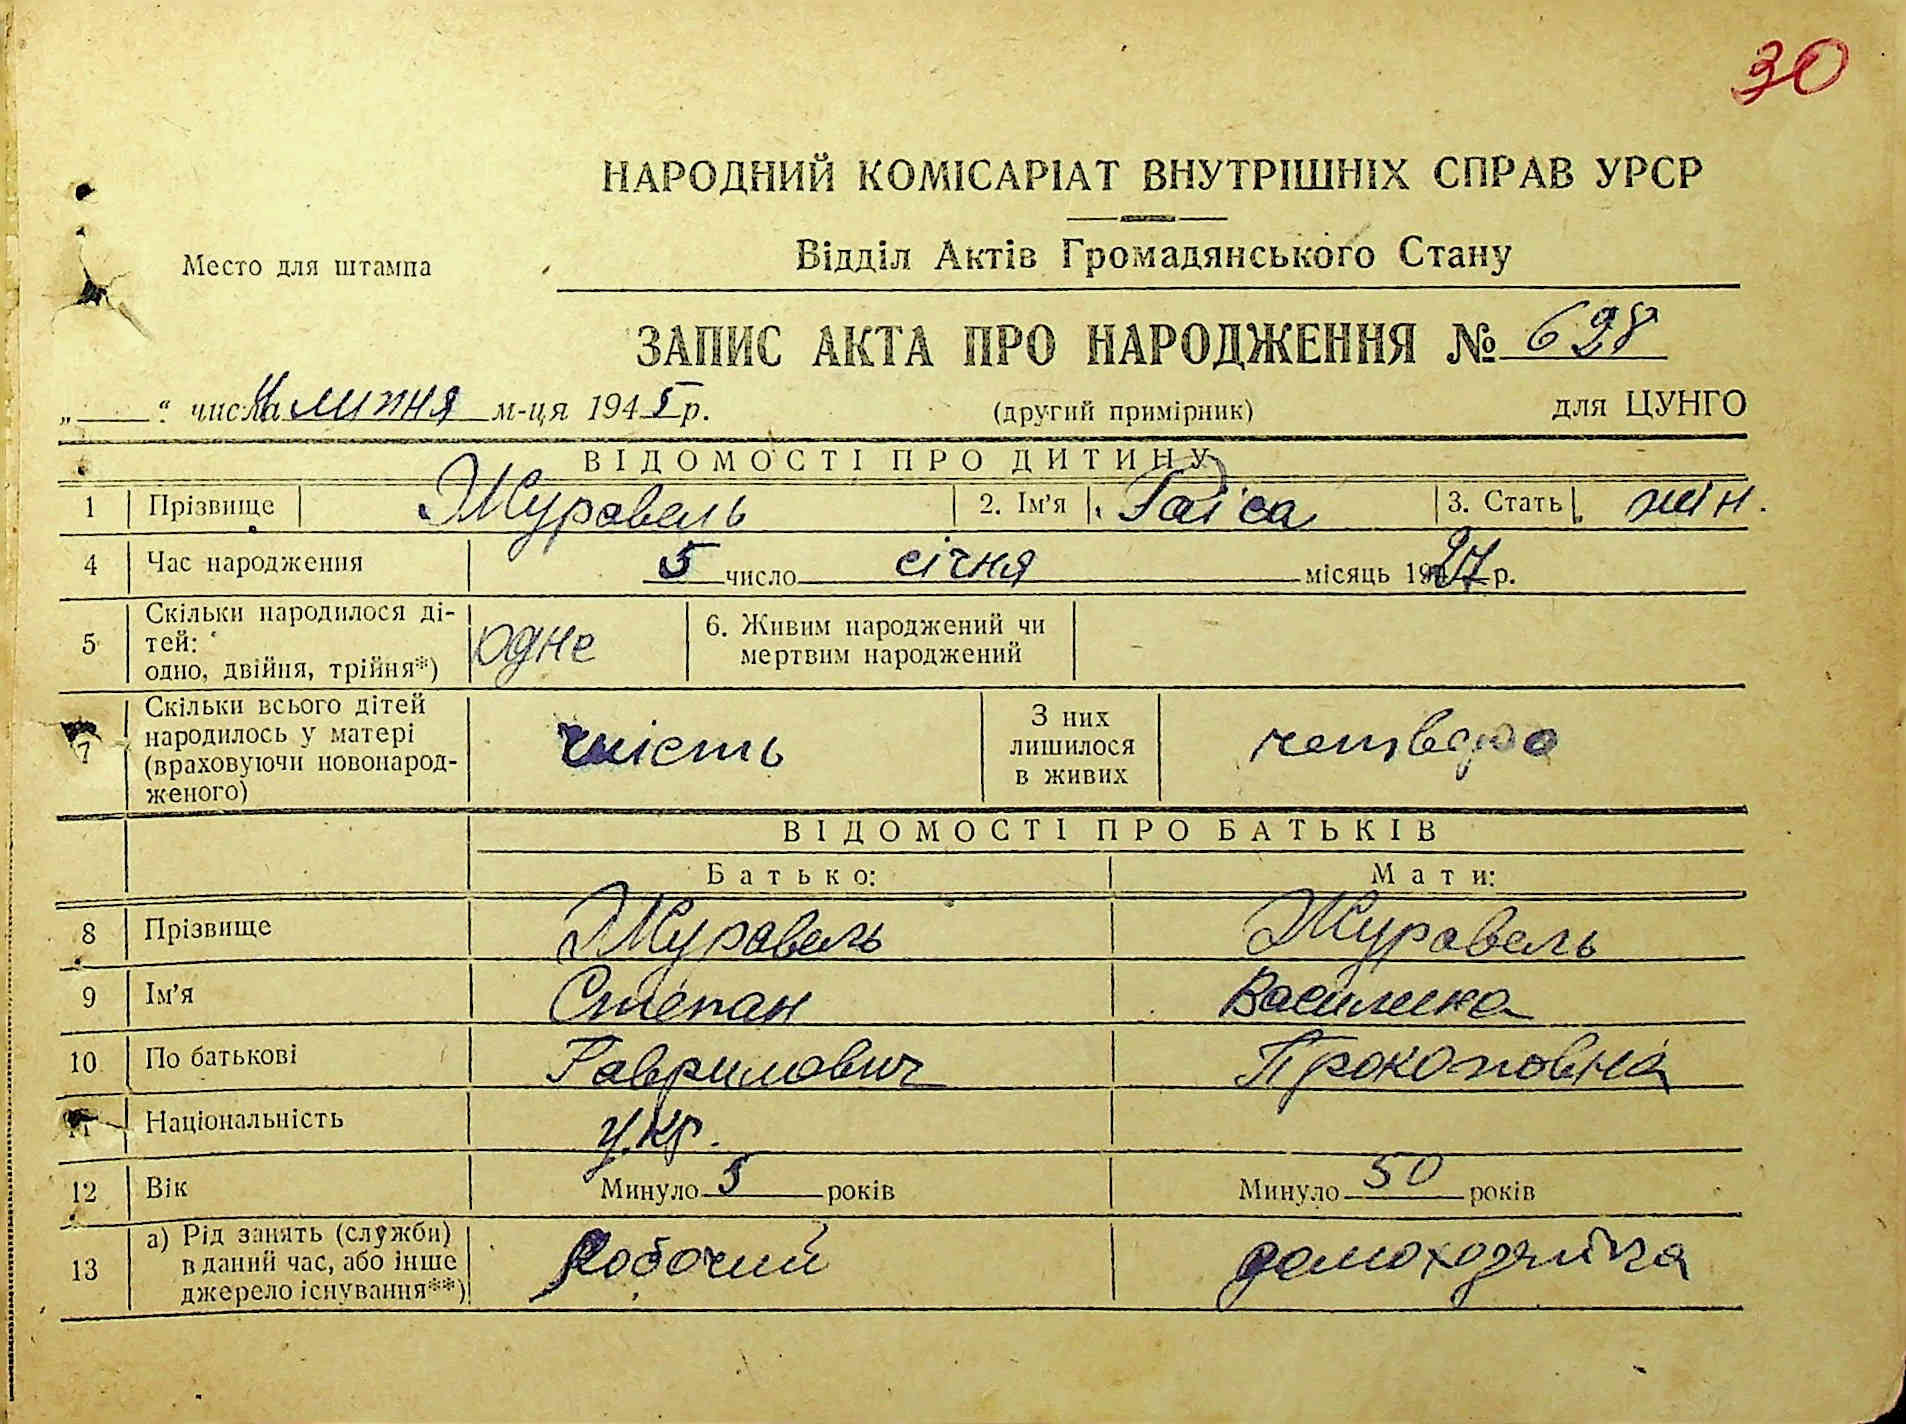 30
НАРОДНИЙ КОМІСАРІАТ ВНУТРІШНІХ СПРАВ УРСР
Место для штампа
Відділ Актів Громадянського Стану
ЗАПИС АКТА ПРО НАРОДЖЕННЯ № 628
„ “ числа 4 липня м-ця 1945 р. (другий примірник) для ЦУНГО
ВІДОМОСТІ ПРО ДИТИНУ
1 Прізвище Журавель 2. Ім'я Раїса 3. Стать жін.
4 Час народження 5 число січня місяць 1927 р.
5 Скільки народилося ді-
тей:
одно, двійня, трійня*) одне 6. Живим народжений чи
мертвим народжений
7 Скільки всього дітей
народилось у матері
(враховуючи новонарод-
женого) шість З них
лишилося
в живих четверо
ВІДОМОСТІ ПРО БАТЬКІВ
Батько: Мати:
8 Прізвище Журавель Журавель
9 Ім'я Степан Василина
10 По батькові Гаврилович Прокоповна
11 Національність укр.
12 Вік Минуло 5 років Минуло 50 років
13 а) Рід занять (служби)
в даний час, або інше
джерело існування**) Робочий домохозяйка